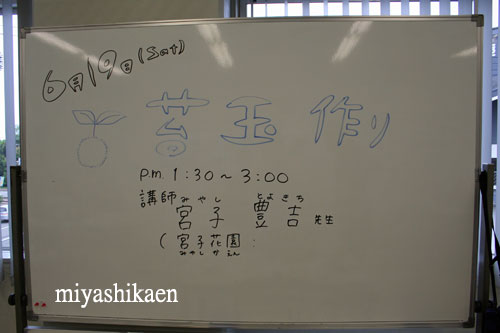 6月19日(Sat)
苔玉作り
P.m. 1:30～3:00
講師 宮子 豊吉 先生
みやし とよきち
(宮子花園:
みやしかえん
miyashikaen